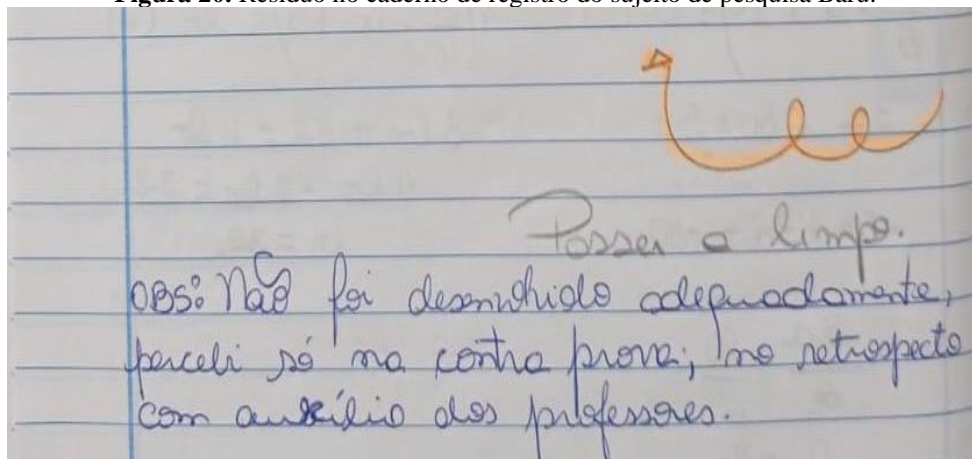 Figura 20. Resíduo no caderno de registro do sujeito de pesquisa Baru.
Passei a limpo.
OBS: Não foi desenvolvido adequadamente,
percebi só na contra prova, no retrospecto
com auxílio dos professores.